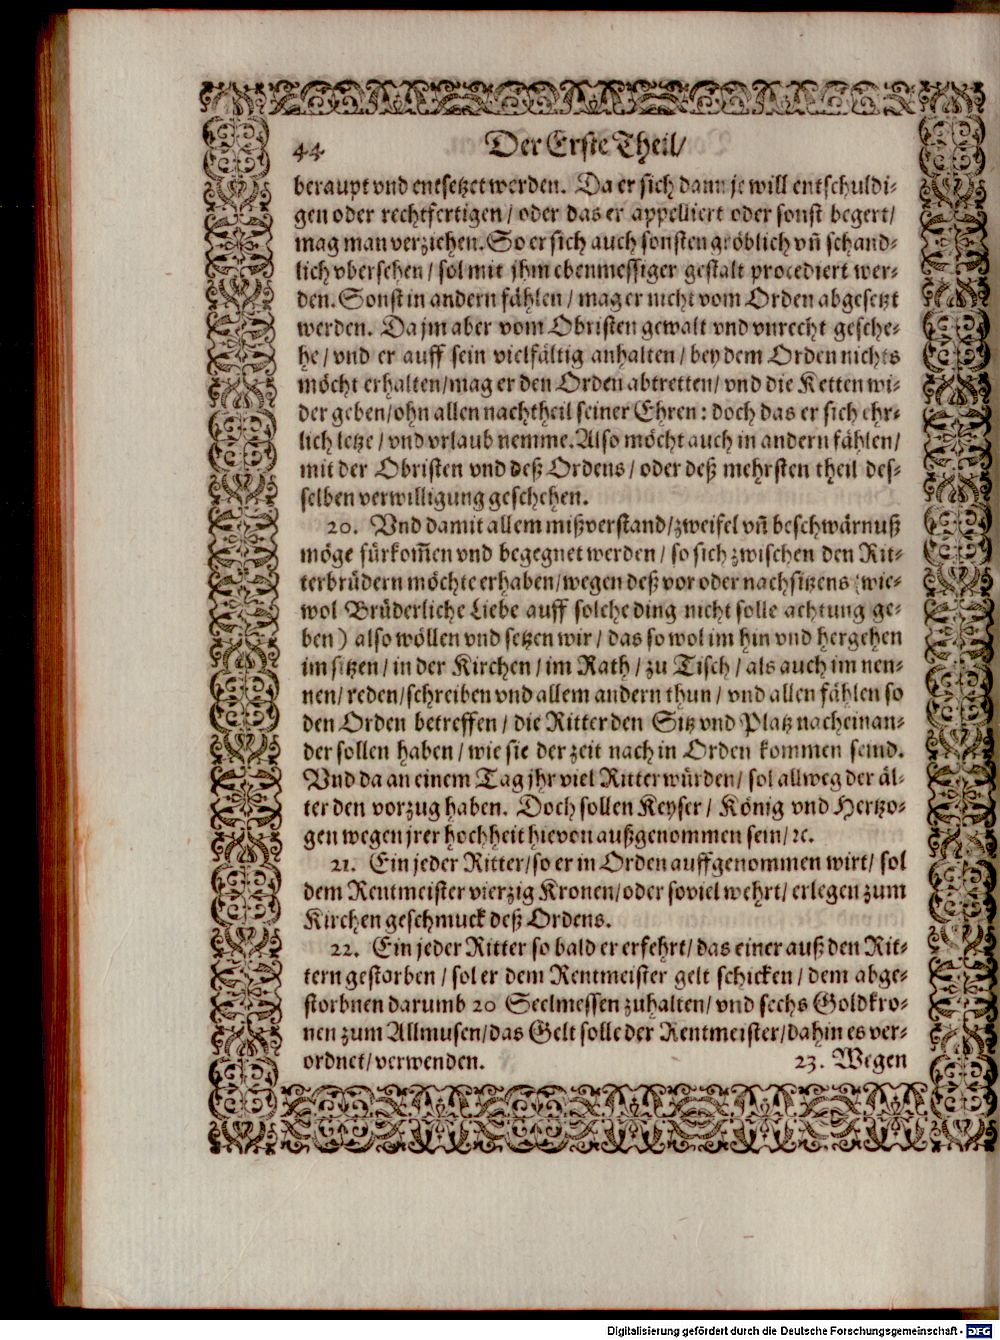 44 Der Erste Theil/
beraupt vnd entsetzet werden. Da er sich dann je will entschuldi-
gen oder rechtfertigen / oder das er appelliert oder sonst begert /
mag man verziehen. So er sich auch sonsten gröblich vn̄ schand-
lich vbersehen / sol mit jhm ebenmessiger gestalt procediert wer-
den. Sonst in andern fählen / mag er nicht vom Orden abgesetzt
werden. Da jm aber vom Obristen gewalt vnd vnrecht gesche-
he / vnd er auff sein vielfältig anhalten / bey dem Orden nichts
möcht erhalten/mag er den Orden abtretten/ vnd die Ketten wi-
der geben/ohn allen nachtheil seiner Ehren: doch das er sich ehr-
lich letze / vnd vrlaub nemme. Also möcht auch in andern fählen/
mit der Obristen vnd deß Ordens / oder deß mehrsten theil des-
selben verwilligung geschehen.
20. Vnd damit allem mißverstand/zweifel vn̄ beschwärnuß
möge fürkom̄en vnd begegnet werden / so sich zwischen den Rit-
terbrüdern möchte erhaben/wegen deß vor oder nachsitzens (wie-
wol Brüderliche Liebe auff solche ding nicht solle achtung ge-
ben) also wöllen vnd setzen wir / das so wol im hin vnd hergehen
im sitzen / in der Kirchen / im Rath / zu Tisch / als auch im nen-
nen/ reden/schreiben vnd allem andern thun / vnd allen fählen so
den Orden betreffen / die Ritter den Sitz vnd Platz nacheinan-
der sollen haben / wie sie der zeit nach in Orden kommen seind.
Vnd da an einem Tag jhr viel Ritter würden/ sol allweg der äl-
ter den vorzug haben. Doch sollen Keyser / König vnd Hertzo-
gen wegen jrer hochheit hievon außgenommen sein/ ꝛc.
21. Ein jeder Ritter/so er in Orden auffgenommen wirt/ sol
dem Rentmeister vierzig Kronen/oder soviel wehrt/ erlegen zum
Kirchen geschmuck deß Ordens.
22. Ein jeder Ritter so bald er erfehrt/ das einer auß den Rit-
tern gestorben / sol er dem Rentmeister gelt schicken / dem abge-
storbnen darumb 20 Seelmessen zuhalten/ vnd sechs Goldkro-
nen zum Allmusen/das Gelt solle der Rentmeister/dahin es ver-
ordnet / verwenden. 23. Wegen
Digitalisierung gefördert durch die Deutsche Forschungsgemeinschaft - DFG